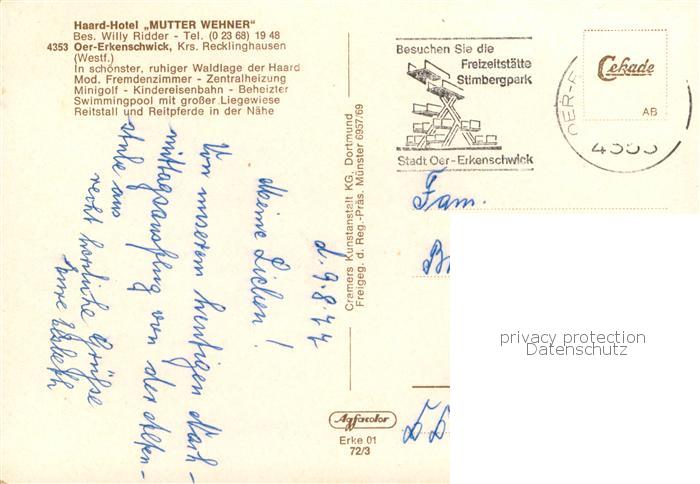 Haard-Hotel „MUTTER WEHNER“
Bes. Willy Ridder - Tel. (0 23 68) 19 48
4353 Oer-Erkenschwick, Krs. Recklinghausen
(Westf.)
In schönster, ruhiger Waldlage der Haard
Mod. Fremdenzimmer - Zentralheizung
Minigolf - Kindereisenbahn - Beheizter
Swimmingpool mit großer Liegewiese
Reitstall und Reitpferde in der Nähe
d. 9.8.77
Meine Lieben!
Von unserem heutigen Nach-
mittagsausflug von der Alten-
stube aus
recht herzliche Grüße
Eure
Cramers Kunstanstalt KG, Dortmund
Freigeg. d. Reg.-Präs. Münster 6957/69
Agfacolor
Erke 01
72/3
Besuchen Sie die
Freizeitstätte
Stimbergpark
Stadt Oer-Erkenschwick
OER-E
4353
Cekade
AB
Fam.
privacy protection
Datenschutz